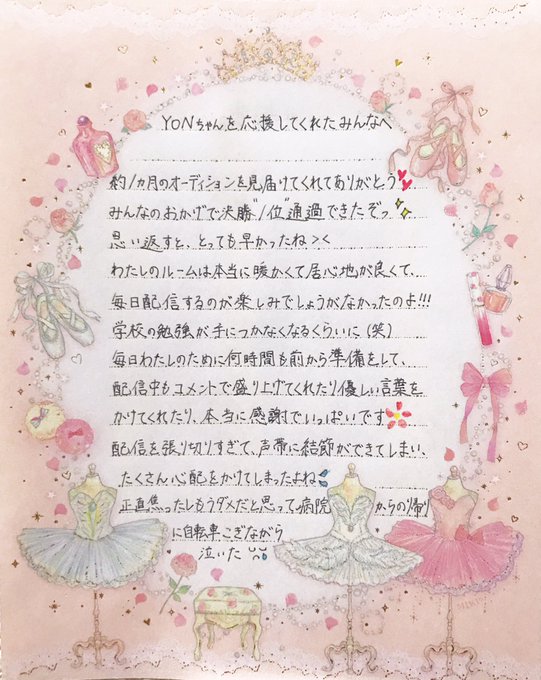 YONちゃんを応援してくれたみんなへ
約1ヵ月のオーディションを見届けてくれてありがとう
みんなのおかげで決勝"1位"通過できたぞっ
思い返すと、とっても早かったね><
わたしのルームは本当に暖かくて居心地が良くて、
毎日配信するのが楽しみでしょうがなかったのよ!!!
学校の勉強が手につかなくなるくらいに(笑)
毎日わたしのために何時間も前から準備をして、
配信中もコメントで盛り上げてくれたり優しい言葉を
かけてくれたり、本当に感謝でいっぱいです
配信を張り切りすぎて、声帯に結節ができてしまい、
たくさん心配をかけてしまったよね
正直焦ったしもうダメだと思って、病院からの帰り
に自転車こぎながら
泣いた